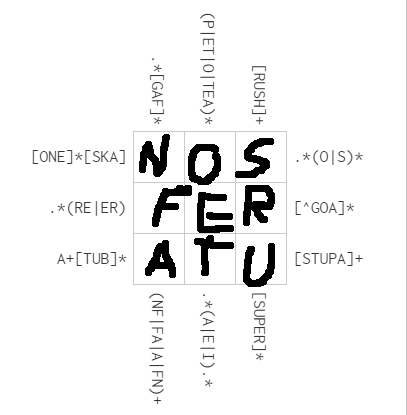 .*[GAF]* (P|ET|O|TEA)* [RUSH]+
[ONE]*[SKA] N O S .*(O|S)*
.*(RE|ER) F E R [^GOA]*
A+[TUB]* A T U [STUPA]+
(NF|FA|A|FN)+ .*(A|E|I).* [SUPER]*